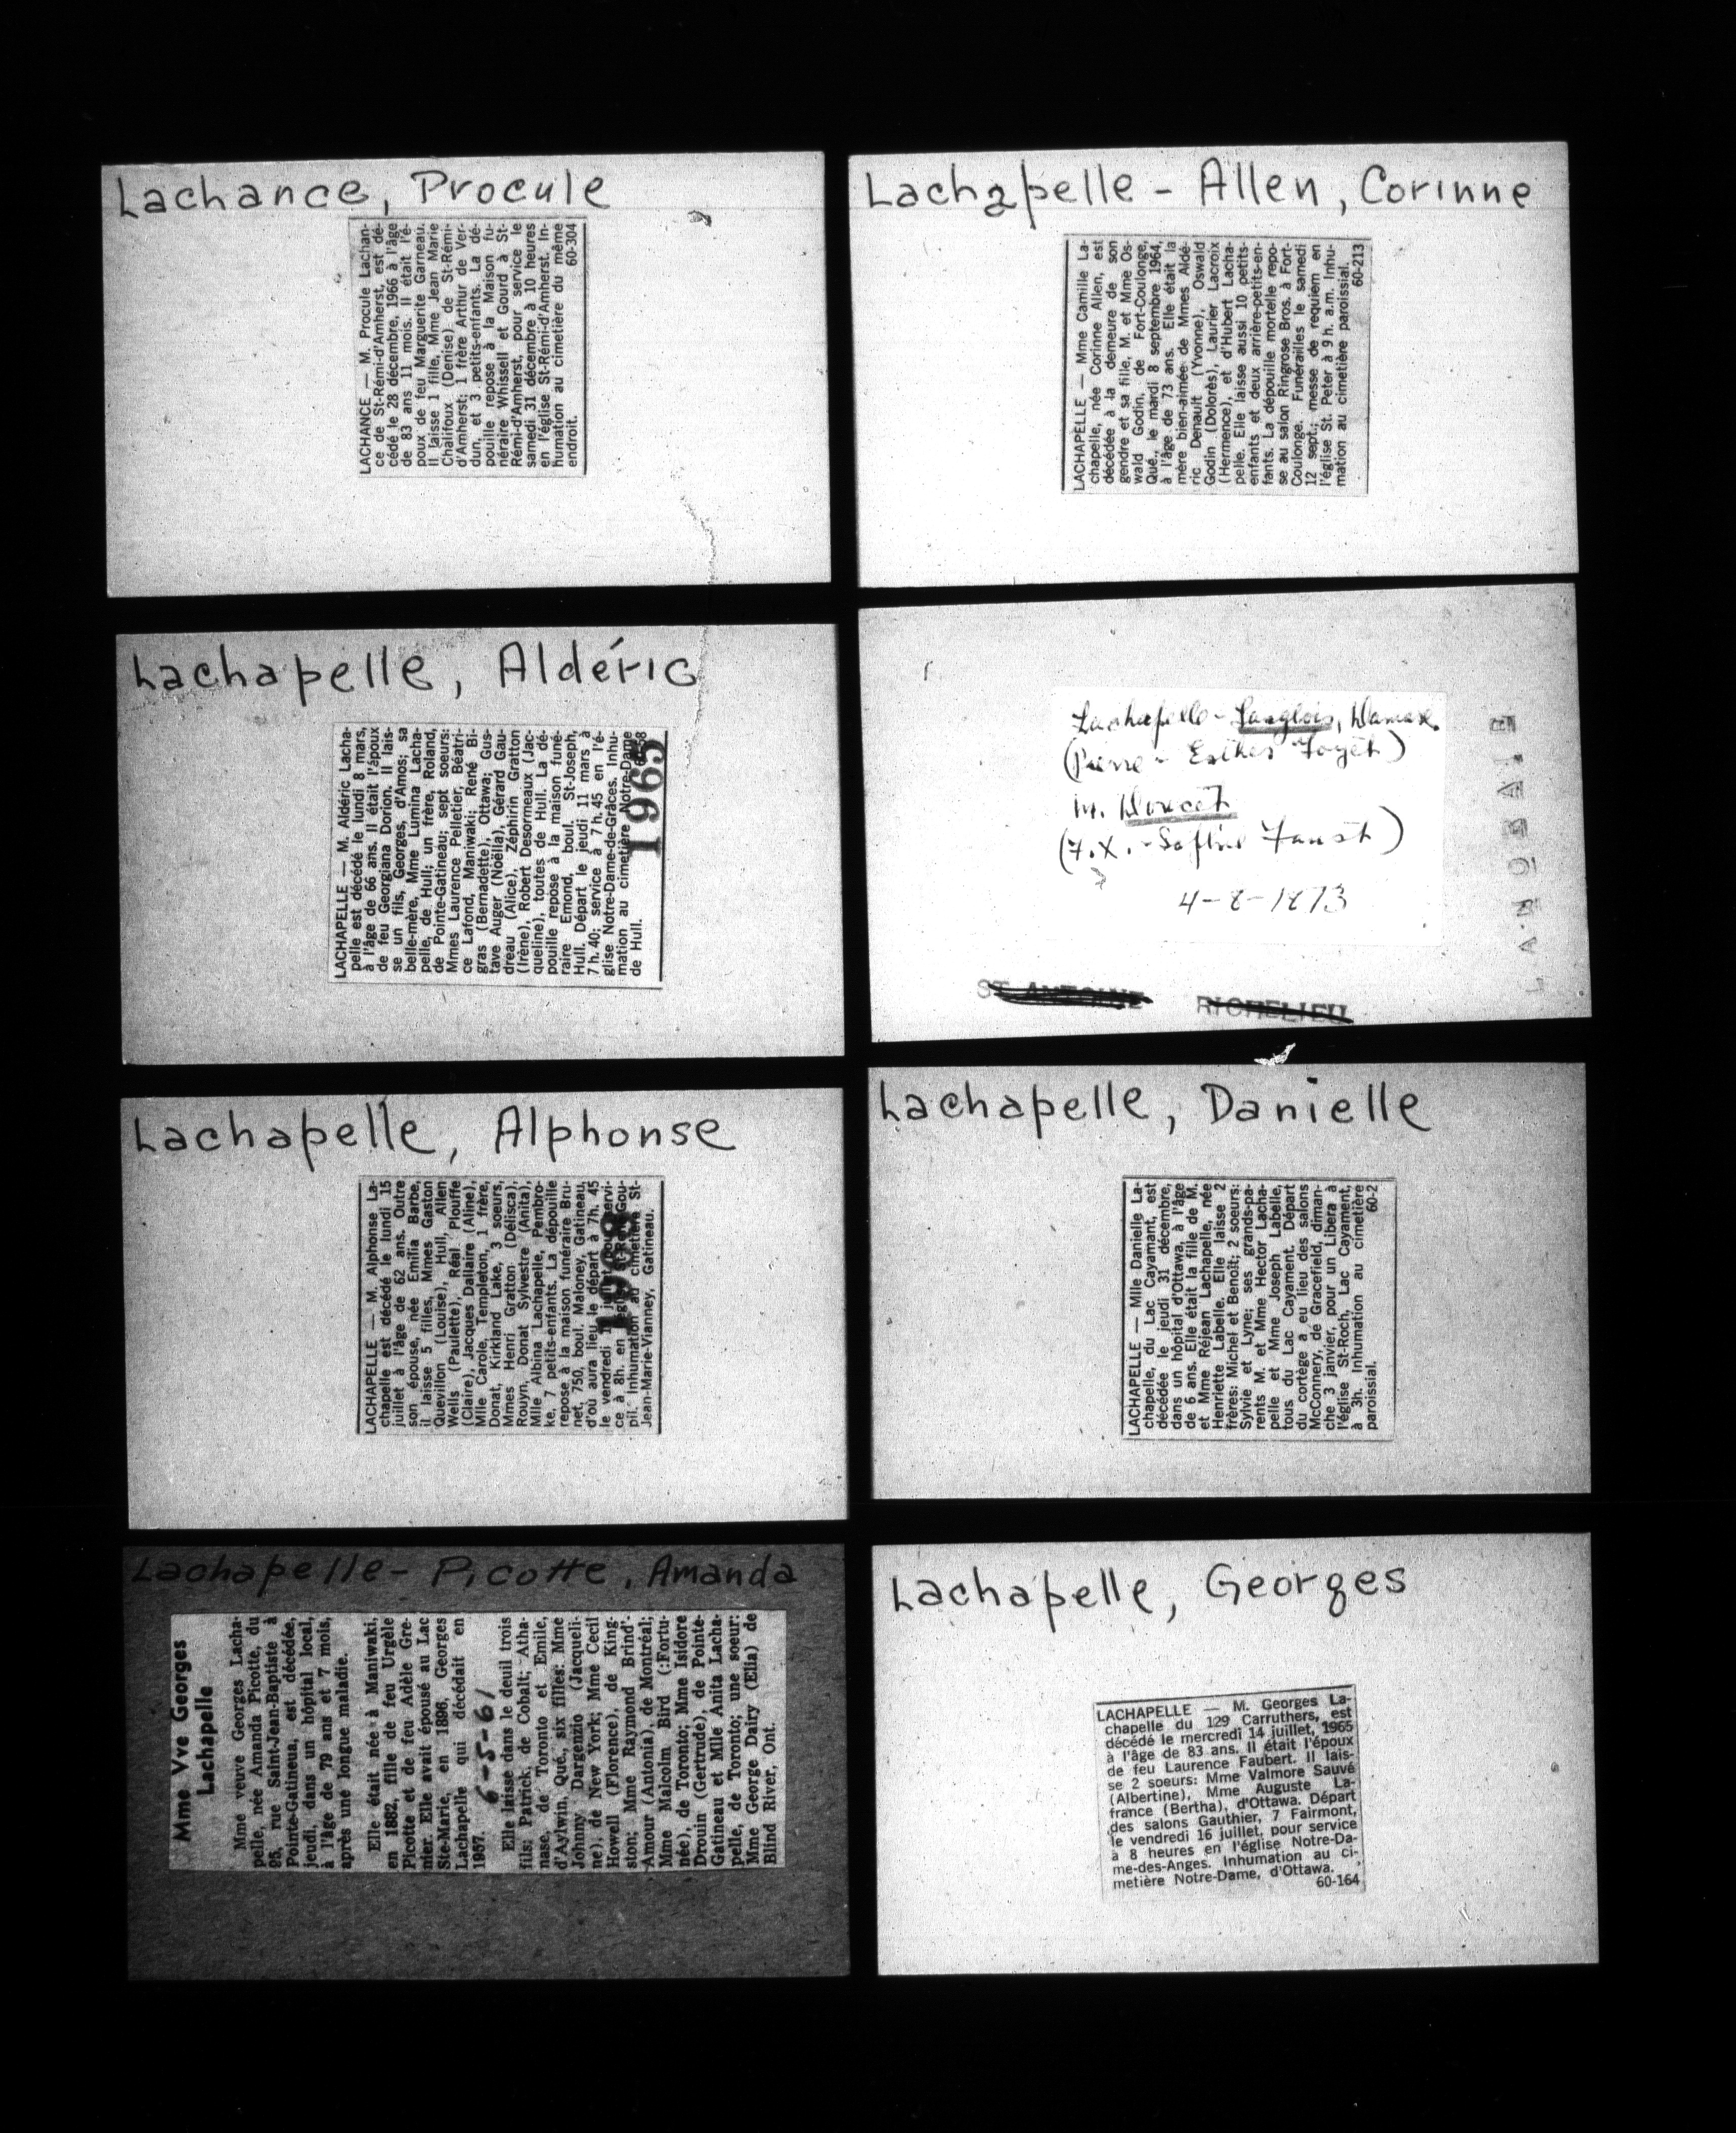 Lachance, Procule
LACHANCE — M. Procule Lachan-
ce de St-Rémi-d'Amherst, est dé-
cédé le 28 décembre, 1966 à l'âge
de 83 ans 11 mois. Il était l'é-
poux de feu Marguerite Garneau.
Il laisse 1 fille, Mme Jean Marie
Chalifoux (Denise) de St-Rémi-
d'Amherst; 1 frère Arthur de Ver-
dun, et 3 petits-enfants. La dé-
pouille repose à la Maison fu-
néraire Whissell et Gourd à St-
Rémi-d'Amherst, pour service le
samedi 31 décembre à 10 heures
en l'église St-Rémi-d'Amherst. In-
humation au cimetière du même
endroit. 60-304
Lachapelle - Allen, Corinne
LACHAPELLE — Mme Camille La-
chapelle, née Corinne Allen, est
décédée à la demeure de son
gendre et sa fille, M. et Mme Os-
wald Godin, de Fort-Coulonge,
Qué., le mardi 8 septembre 1964,
à l'âge de 73 ans. Elle était la
mère bien-aimée de Mmes Aldé-
ric Denault (Yvonne), Oswald
Godin (Dolorès), Laurier Lacroix
(Hermence), et d'Hubert Lacha-
pelle. Elle laisse aussi 10 petits-
enfants et deux arrière-petits-en-
fants. La dépouille mortelle repo-
se au salon Ringrose Bros. à Fort-
Coulonge. Funérailles le samedi
12 sept.; messe de requiem en
l'église St. Peter à 9 h. a.m. Inhu-
mation au cimetière paroissial.
60-213
Lachapelle, Aldéric
LACHAPELLE — M. Aldéric Lacha-
pelle est décédé le lundi 8 mars,
à l'âge de 66 ans. Il était l'époux
de feu Georgiana Dorion. Il lais-
se un fils, Georges, d'Amos; sa
belle-mère, Mme Lumina Lacha-
pelle, de Hull; un frère, Roland,
de Pointe-Gatineau; sept soeurs:
Mmes Laurence Pelletier, Béatri-
ce Lafond, Maniwaki; René Bi-
gras (Bernadette), Ottawa; Gus-
tave Auger (Noëlla), Gérard Gau-
dreau (Alice), Zéphirin Gratton
(Irène), Robert Desormeaux (Jac-
queline), toutes de Hull. La dé-
pouille repose à la maison funé-
raire Emond, boul. St-Joseph,
Hull. Départ le jeudi 11 mars à
7 h. 40; service à 7 h. 45 en l'é-
glise Notre-Dame-de-Grâces. Inhu-
mation au cimetière Notre-Dame
de Hull.
1965
Lachapelle - Langlois, Damase
(Pierre - Esther Foyet)
m. Doucet
(F.X. - Saflie Faust)
4-8-1873
ST ANTOINE RICHELIEU
Lachapelle, Alphonse
LACHAPELLE — M. Alphonse La-
chapelle est décédé le lundi 15
juillet à l'âge de 62 ans. Outre
son épouse, née Emilia Barbe,
il laisse 5 filles, Mmes Gaston
Quevillon (Louise), Hull, Allen
Wells (Paulette), Réal Plouffe
(Claire), Jacques Dallaire (Aline),
Mlle Carole, Templeton, 1 frère,
Donat, Kirkland Lake, 3 soeurs,
Mmes Henri Gratton (Délisca),
Rouyn, Donat Sylvestre (Anita),
Mlle Albina Lachapelle, Pembro-
ke, 7 petits-enfants. La dépouille
repose à la maison funéraire Bru-
net, 750, boul. Maloney, Gatineau,
d'où aura lieu le départ à 7h. 45
le vendredi juillet pour servi-
ce à 8h. en église St-René-Gou-
pil. Inhumation au cimetière St-
Jean-Marie-Vianney, Gatineau.
1968
Lachapelle, Danielle
LACHAPELLE — Mlle Danielle La-
chapelle, du Lac Cayamant, est
décédée le jeudi 31 décembre,
dans un hôpital d'Ottawa, à l'âge
de 6 ans. Elle était la fille de M.
et Mme Réjean Lachapelle, née
Henriette Labelle. Elle laisse 2
frères: Michel et Benoît; 2 soeurs:
Sylvie et Lyne; ses grands-pa-
rents M. et Mme Hector Lacha-
pelle et Mme Joseph Labelle,
tous du Lac Cayament. Départ
du cortège a eu lieu des salons
McConnery, de Gracefield, diman-
che 3 janvier, pour un Libera à
l'église St-Roch, Lac Cayament,
à 3h. Inhumation au cimetière
paroissial. 60-2
Lachapelle - Picotte, Amanda
Mme Vve Georges
Lachapelle
Mme veuve Georges Lacha-
pelle, née Amanda Picotte, du
95, rue Saint-Jean-Baptiste à
Pointe-Gatineau, est décédée,
jeudi, dans un hôpital local,
à l'âge de 79 ans et 7 mois,
après une longue maladie.
Elle était née à Maniwaki,
en 1882, fille de feu Urgèle
Picotte et de feu Adèle Gre-
nier. Elle avait épousé au Lac
Ste-Marie, en 1896, Georges
Lachapelle qui décédait en
1957. 6-5-61
Elle laisse dans le deuil trois
fils: Patrick, de Cobalt; Atha-
nase, de Toronto et Emile,
d'Aylwin, Qué., six filles: Mme
Johnny Dargenzio (Jacqueli-
ne), de New York; Mme Cecil
Howell (Florence), de King-
ston; Mme Raymond Brind'-
Amour (Antonia), de Montréal;
Mme Malcolm Bird (:Fortu-
née), de Toronto; Mme Isidore
Drouin (Gertrude), de Pointe-
Gatineau et Mlle Anita Lacha-
pelle, de Toronto; une soeur:
Mme George Dairy (Elia) de
Blind River, Ont.
Lachapelle, Georges
LACHAPELLE — M. Georges La-
chapelle du 129 Carruthers, est
décédé le mercredi 14 juillet, 1965
à l'âge de 83 ans. Il était l'époux
de feu Laurence Faubert. Il lais-
se 2 soeurs: Mme Valmore Sauvé
(Albertine), Mme Auguste La-
france (Bertha), d'Ottawa. Départ
des salons Gauthier, 7 Fairmont,
le vendredi 16 juillet, pour service
à 8 heures en l'église Notre-Da-
me-des-Anges. Inhumation au ci-
metière Notre-Dame, d'Ottawa.
60-164